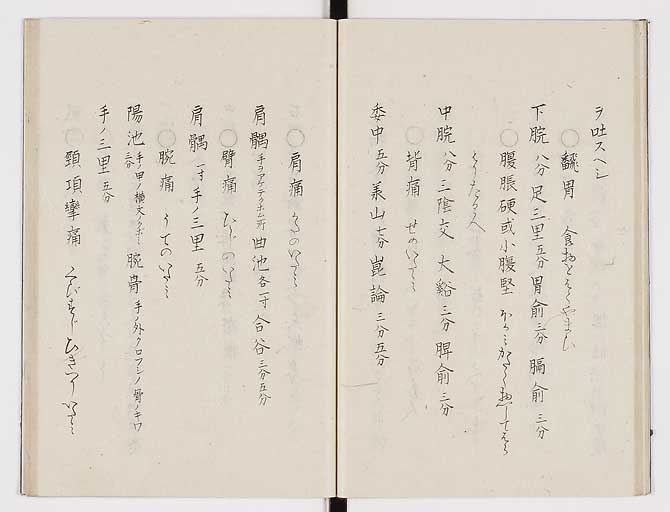 ヲ吐スヘシ
◯飜胃 食物をはくやまひ
下脘 八分 足三里 五分 胃俞 三分 膈俞 三分
◯腹脹硬或小腹堅
中脘 八分 三陰交 大谿 三分 脾俞 三分
◯背痛 せのいたみ
委中 五分 承山 七分 崑崙 三分五分
◯肩痛 かたのいたみ
肩髃 手ヲアケテクホム所 曲池 各一寸 合谷 三分五分
◯臂痛 ひぢのいたみ
肩髃 一寸 手ノ三里 五分
◯腕痛 うでのいたみ
陽池 手ノ甲ノ横文クボミ 三分 腕骨 手ノ外クロフシノ骨ノキワ
手ノ三里 五分
◯頸項攣痛 くびすぢひきつりいたみ